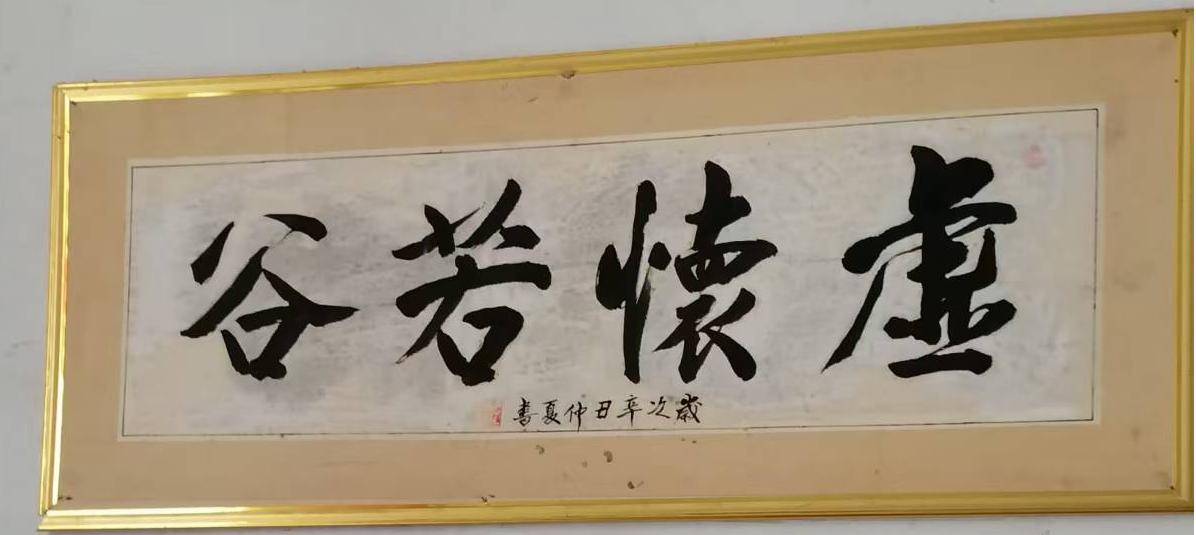 虛懷若谷
歲次辛日仲夏書